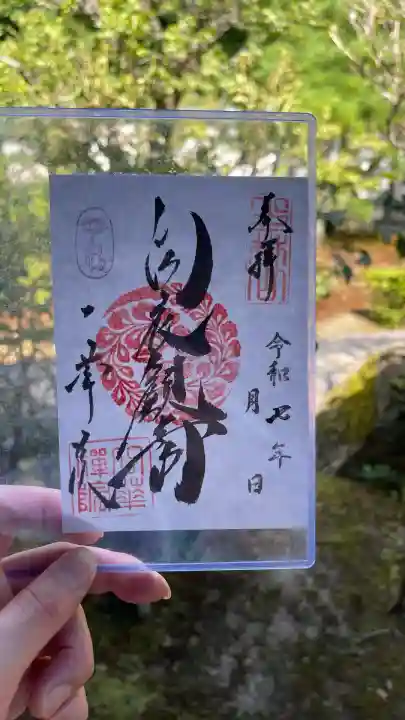 奉拝
令和七年
月 日
白衣観音
一華院